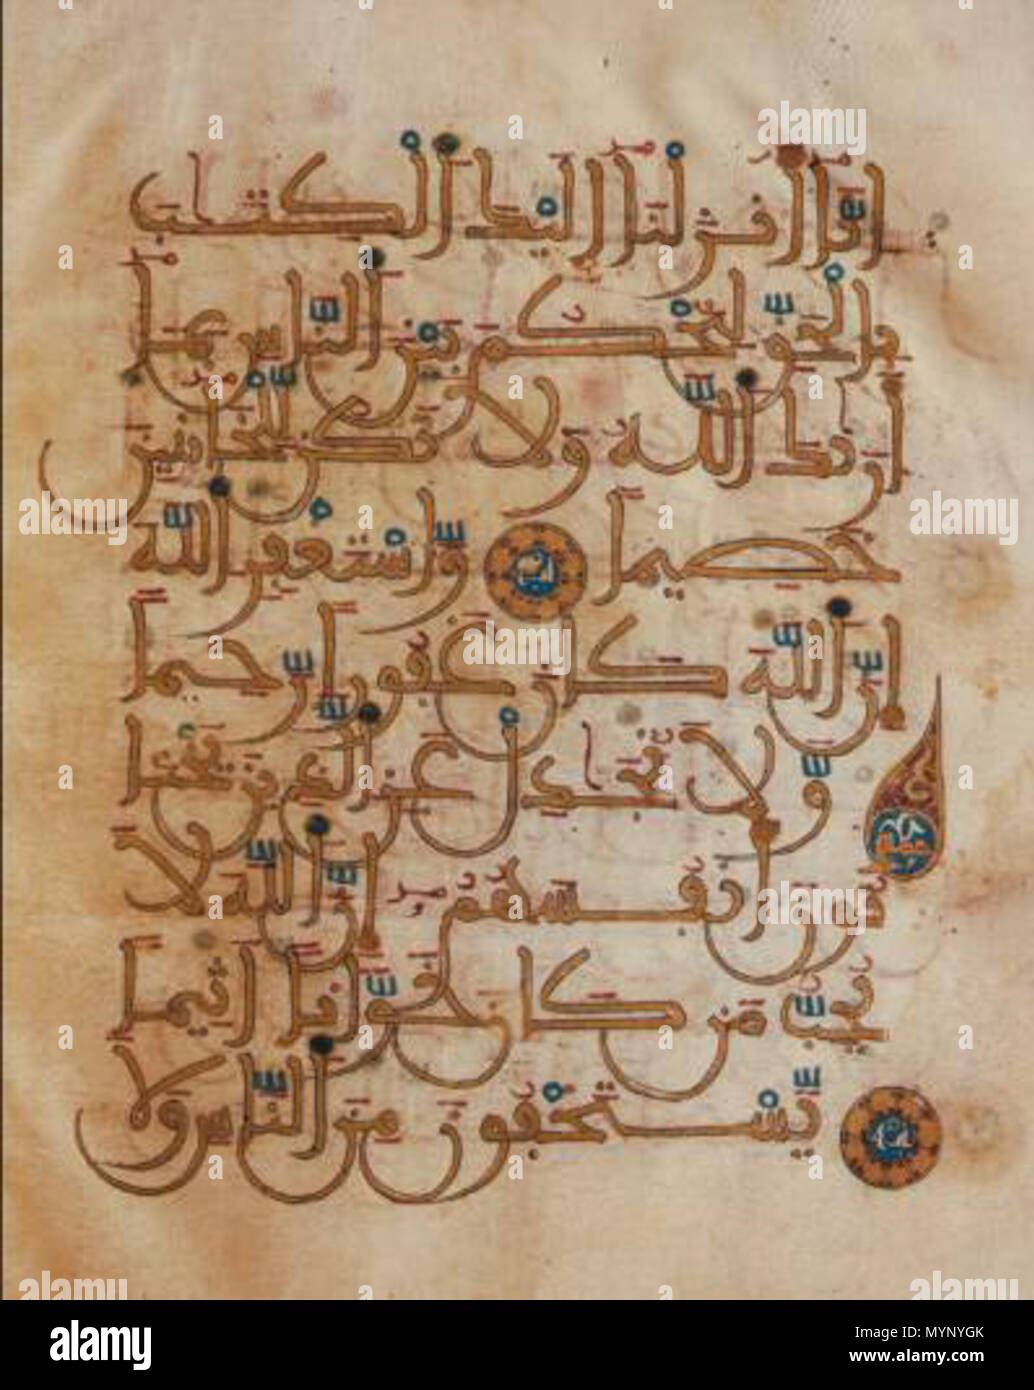 انا انزلنا اليك الكتب
بالحق لتحكم بين الناس بما
اريك الله ولا تكن للخائنين
خصيما واستغفر الله
ان الله كان غفورا رحيما
ولا تجدل عن الذين يختا
نون انفسهم ان الله لا
يحب من كان خوانا اثيما
يستخفون من الناس ولا
alamy
Image ID: MYNYGK
www.alamy.com